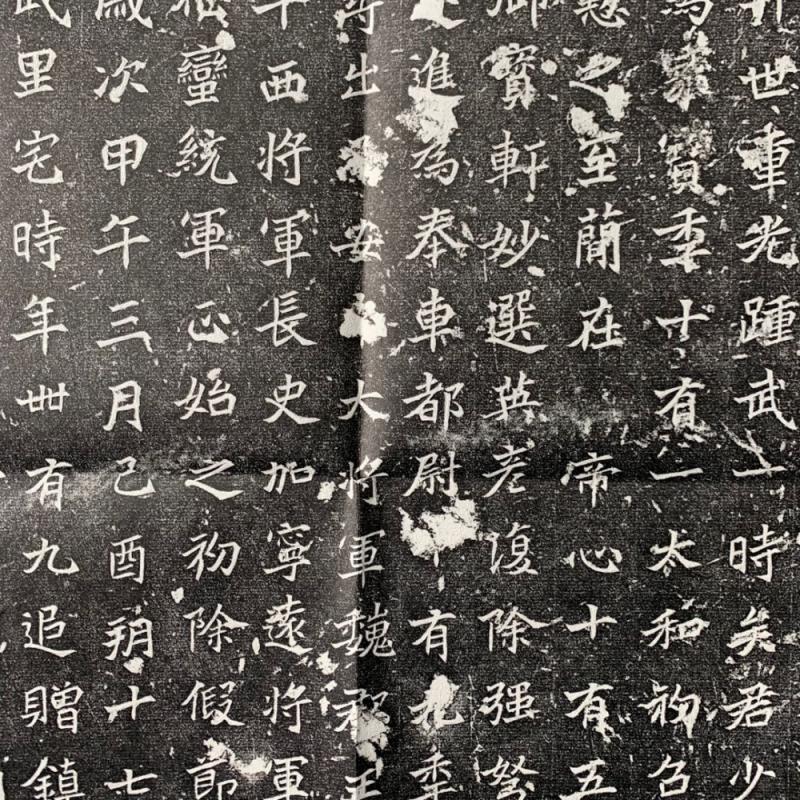 世重光踵武一時矣君少
季十有一太和初召
之至簡在帝心十有五
御寶軒妙選英彦復除强弩
進為奉車都尉十有九季
出安大將軍魏郡王
平西將軍長史加寧遠將軍
蠻統軍正始之初除假節
歲次甲午三月己酉玥十七
武里宅時年卌有九追贈鎮